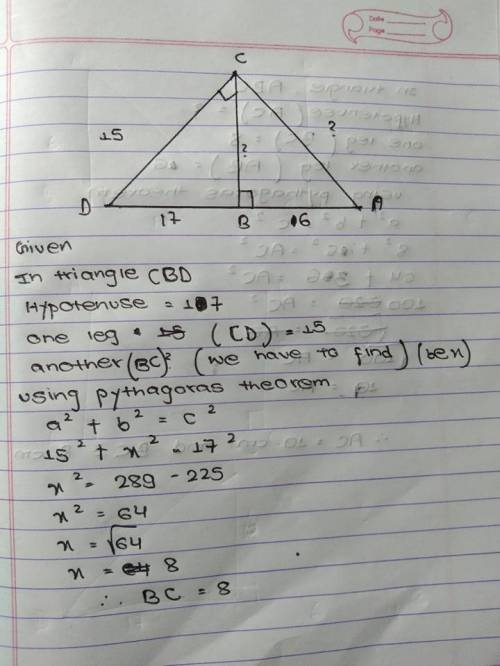 Date
Page
C
15
?
?
D
17
B
6
A
Given
In triangle CBD
Hypotenuse = 17
one leg (CD) = 15
another (BC)? (we have to find) (be x)
using pythagoras theorem
a² + b² = c²
15² + x² = 17²
x² = 289 - 225
x² = 64
x = √64
x = 8
∴ BC = 8